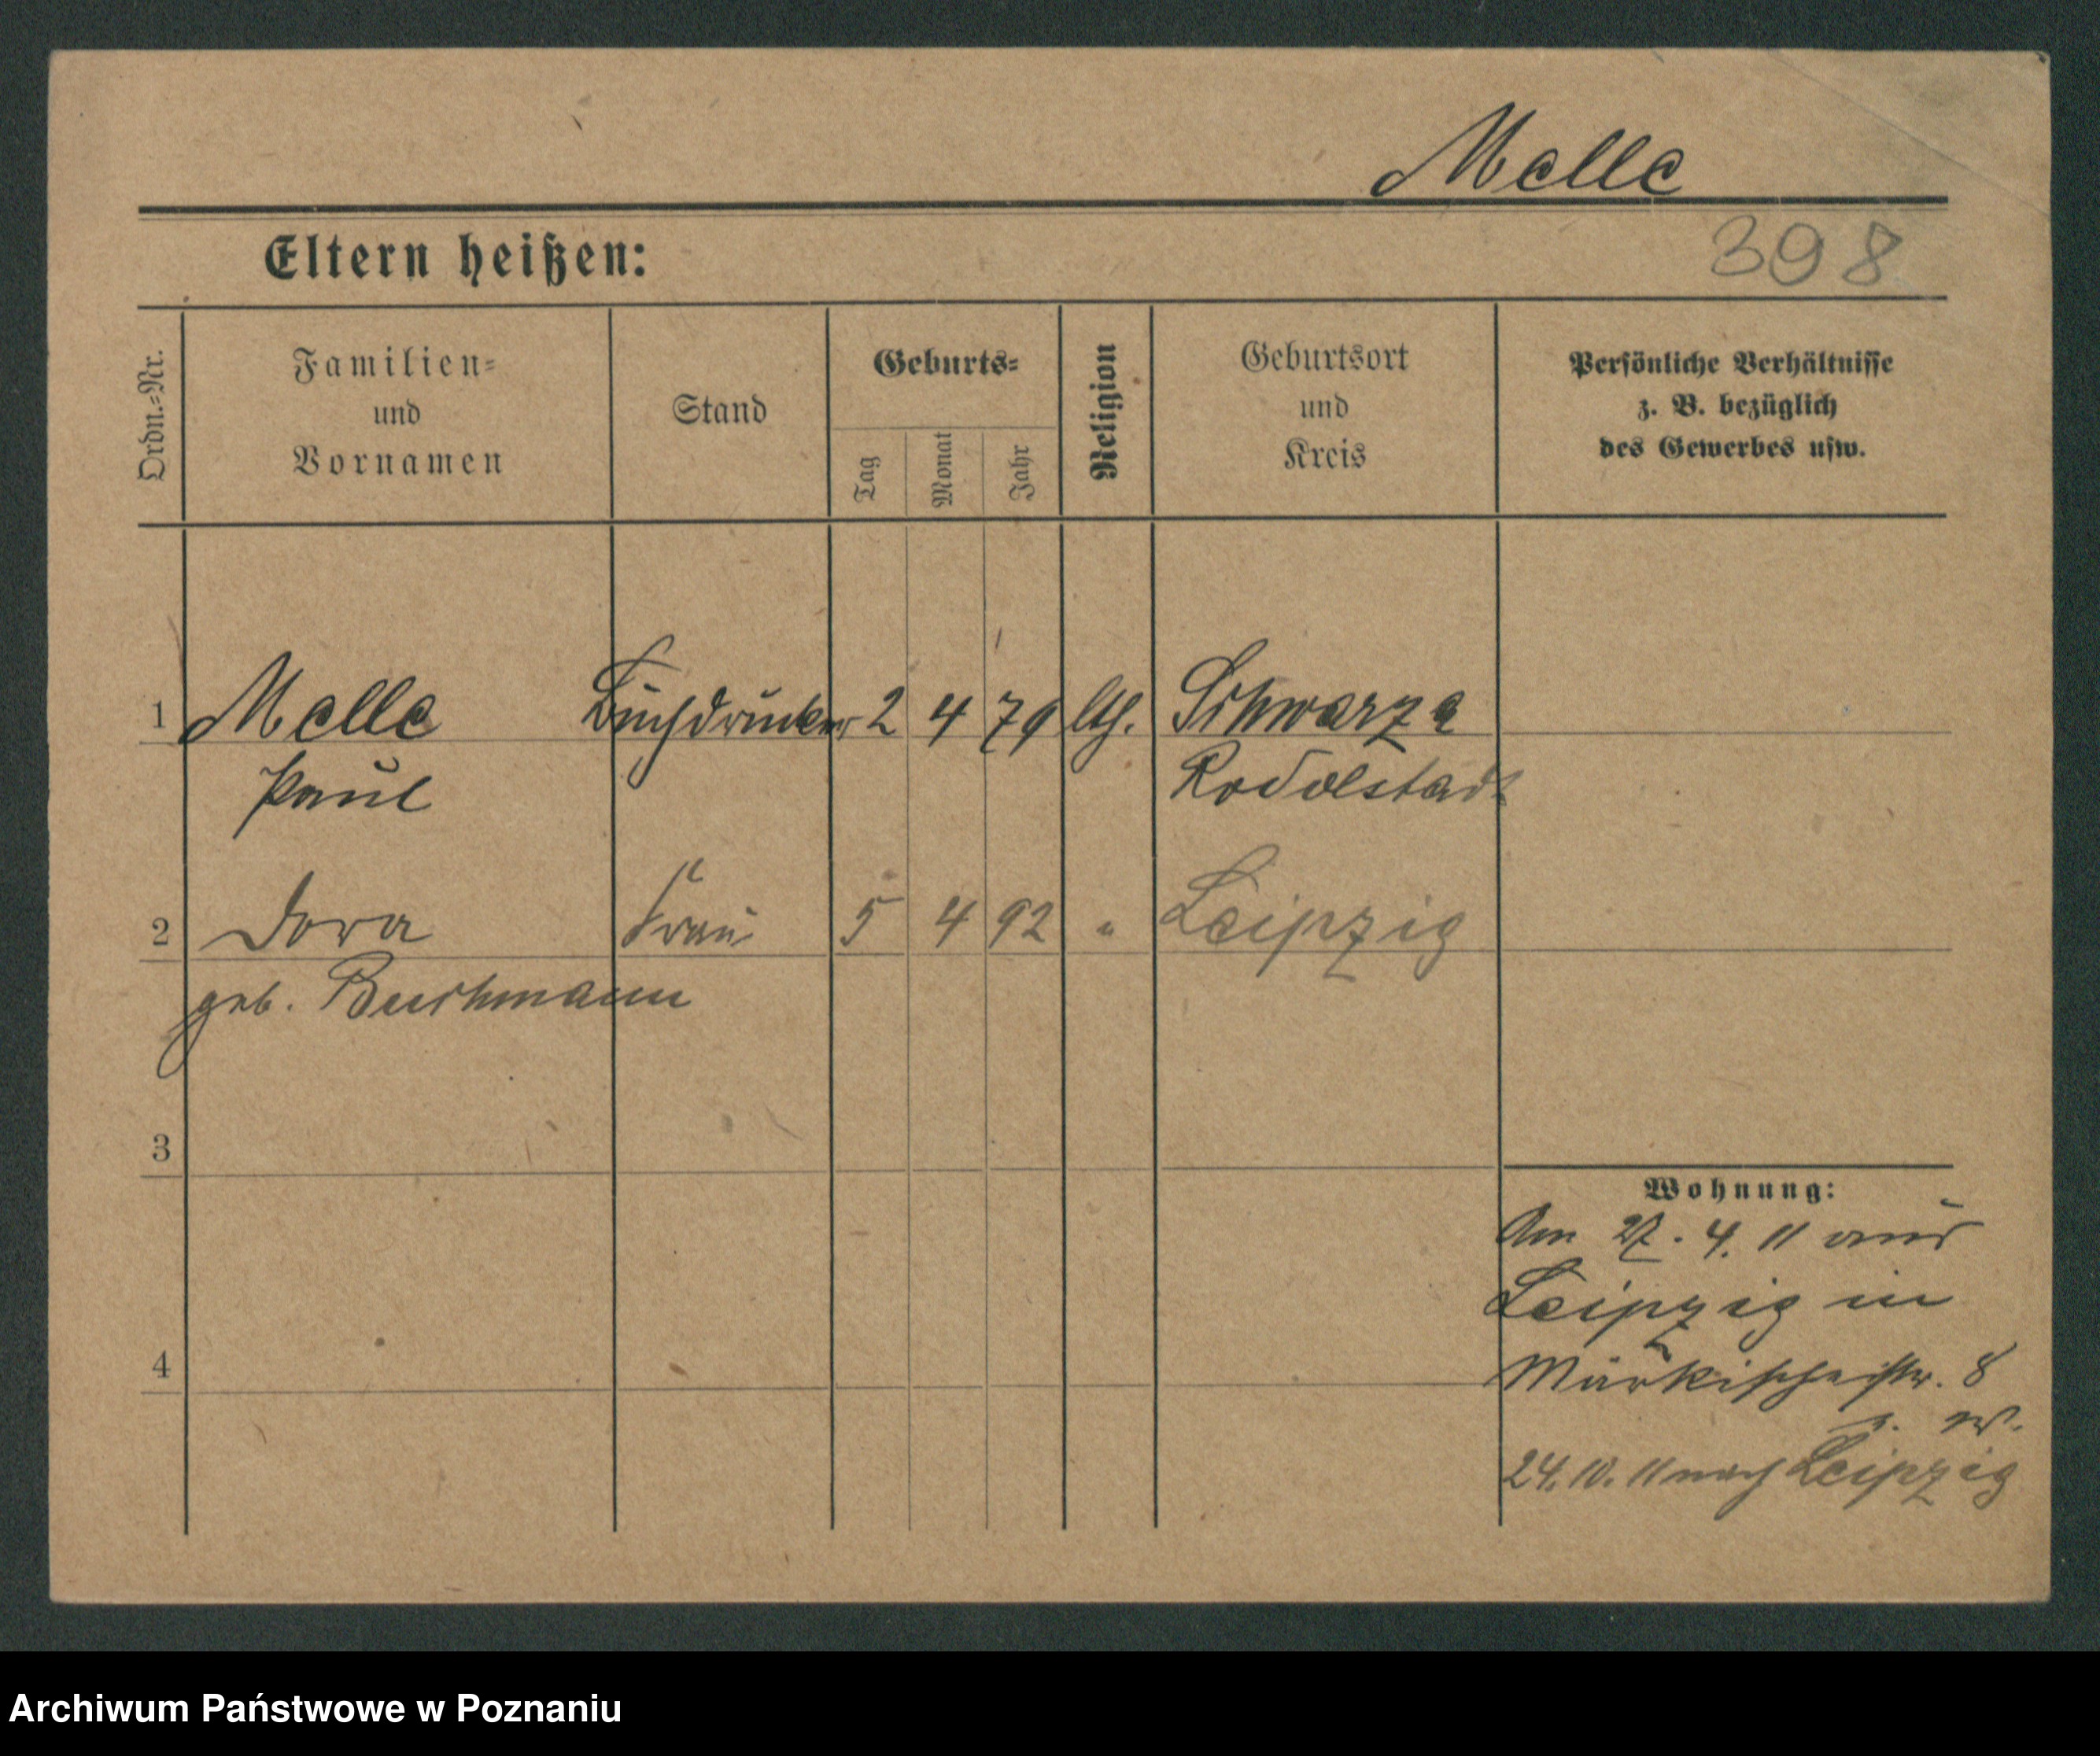 Melle
Eltern heißen:
398
Ordn.-Nr.
Familien-
und
Vornamen
Stand
Geburts-
Tag
Monat
Jahr
Religion
Geburtsort
und
Kreis
Persönliche Verhältnisse
z. B. bezüglich
des Gewerbes usw.
1 Melle Buchdrucker 2 4 79 lth. Schwarza
Paul Rodolstadt
2 Dora Frau 5 4 92 " Leipzig
geb. Buschmann
3
Wohnung:
Am 27. 4. 11 aus
Leipzig in
4
Märkischestr. 8
24. 10. 11 nach Leipzig
Archiwum Państwowe w Poznaniu